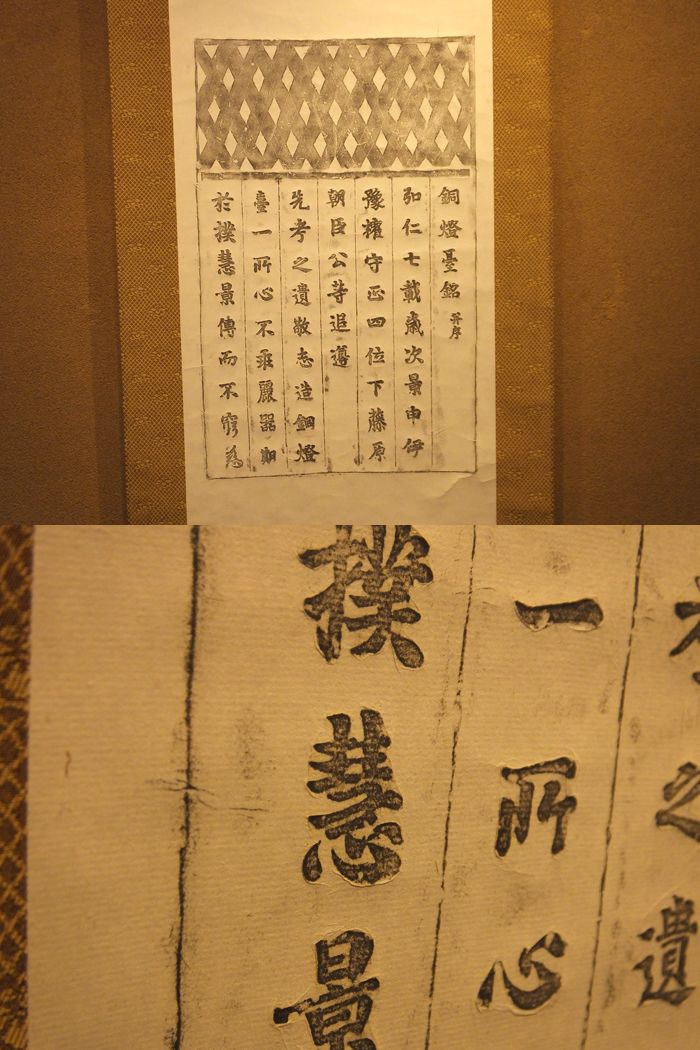 銅燈臺銘 并序
弘仁七載歳次景申伊
豫權守正四位下藤原
朝臣公等追遵
先考之遺敬志造銅燈
臺一所心不乖麗器期
於撲慧景傳而不窮慈
之遺
一所心
撲慧景